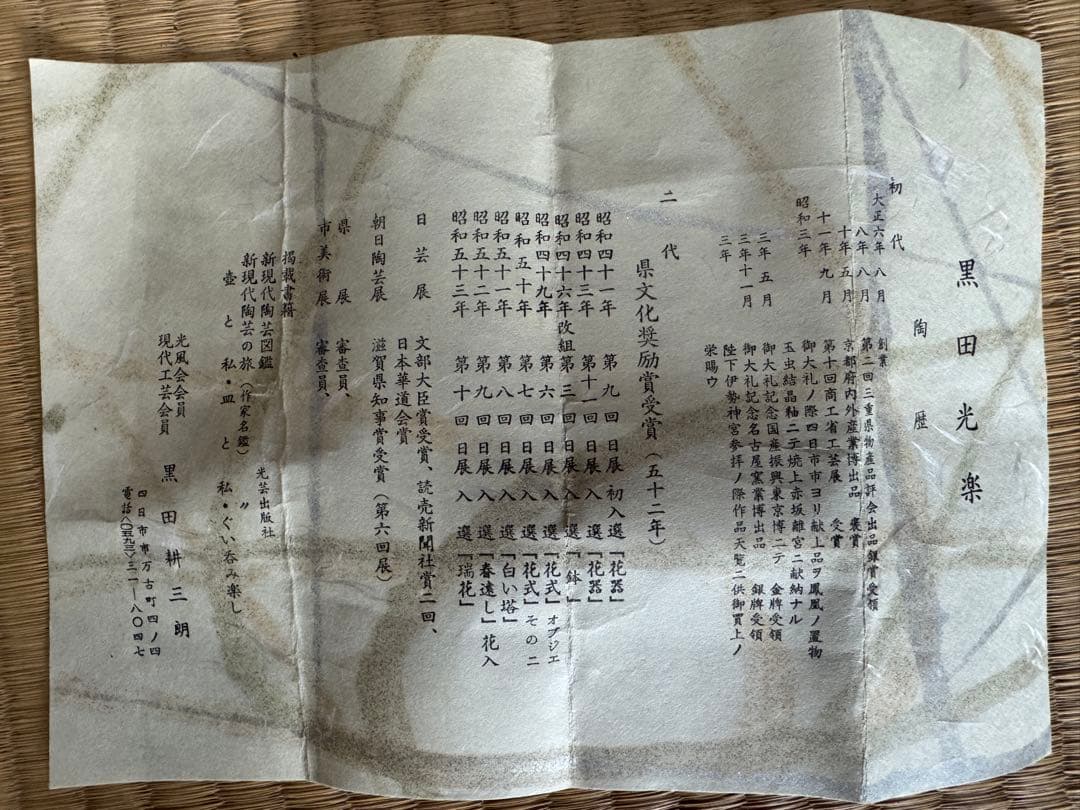 黒田光楽
陶歴
初代
大正六年 八月 創業
八年 八月 第二回三重県物産品評会出品銀賞受領
十年 五月 京都府内外産業博出品 褒賞
十一年 九月 第十回商工省工芸展 受賞
昭和三年 御大礼ノ際四日市市ヨリ献上品ヲ鳳凰ノ置物
玉虫結晶釉ニテ焼上赤坂離宮ニ献納ナル
三年 五月 御大礼記念国産振興東京博ニテ 金牌受領
三年十一月 御大礼記念名古屋窯業博出品 銀牌受領
三年 陛下伊勢神宮参拝ノ際作品天覧ニ供御買上ノ
栄賜ウ
二代 県文化奨励賞受賞(五十二年)
昭和四十一年 第九回日展 初入選「花器」
昭和四十三年 第十一回日展 入選「花器」
昭和四十六年改組 第三回日展 入選「鉢」
昭和四十九年 第六回日展 入選「花式」オブジエ
昭和五十年 第七回日展 入選「花式」その二
昭和五十一年 第八回日展 入選「白い塔」
昭和五十二年 第九回日展 入選「春遠し」花入
昭和五十三年 第十回日展 入選「瑞花」
日芸展 文部大臣賞受賞、読売新聞社賞二回、
日本華道会賞
朝日陶芸展 滋賀県知事賞受賞(第六回展)
県展 審査員、
市美術展 審査員、
掲載書籍
新現代陶芸図鑑 光芸出版社
新現代陶芸の旅(作家名鑑) 〃
壺と私・皿と私・ぐい呑み楽し
光風会会員
現代工芸会員 黒田耕三朗
四日市市万古町四ノ四
電話〈〇五九三〉三一―八〇四七